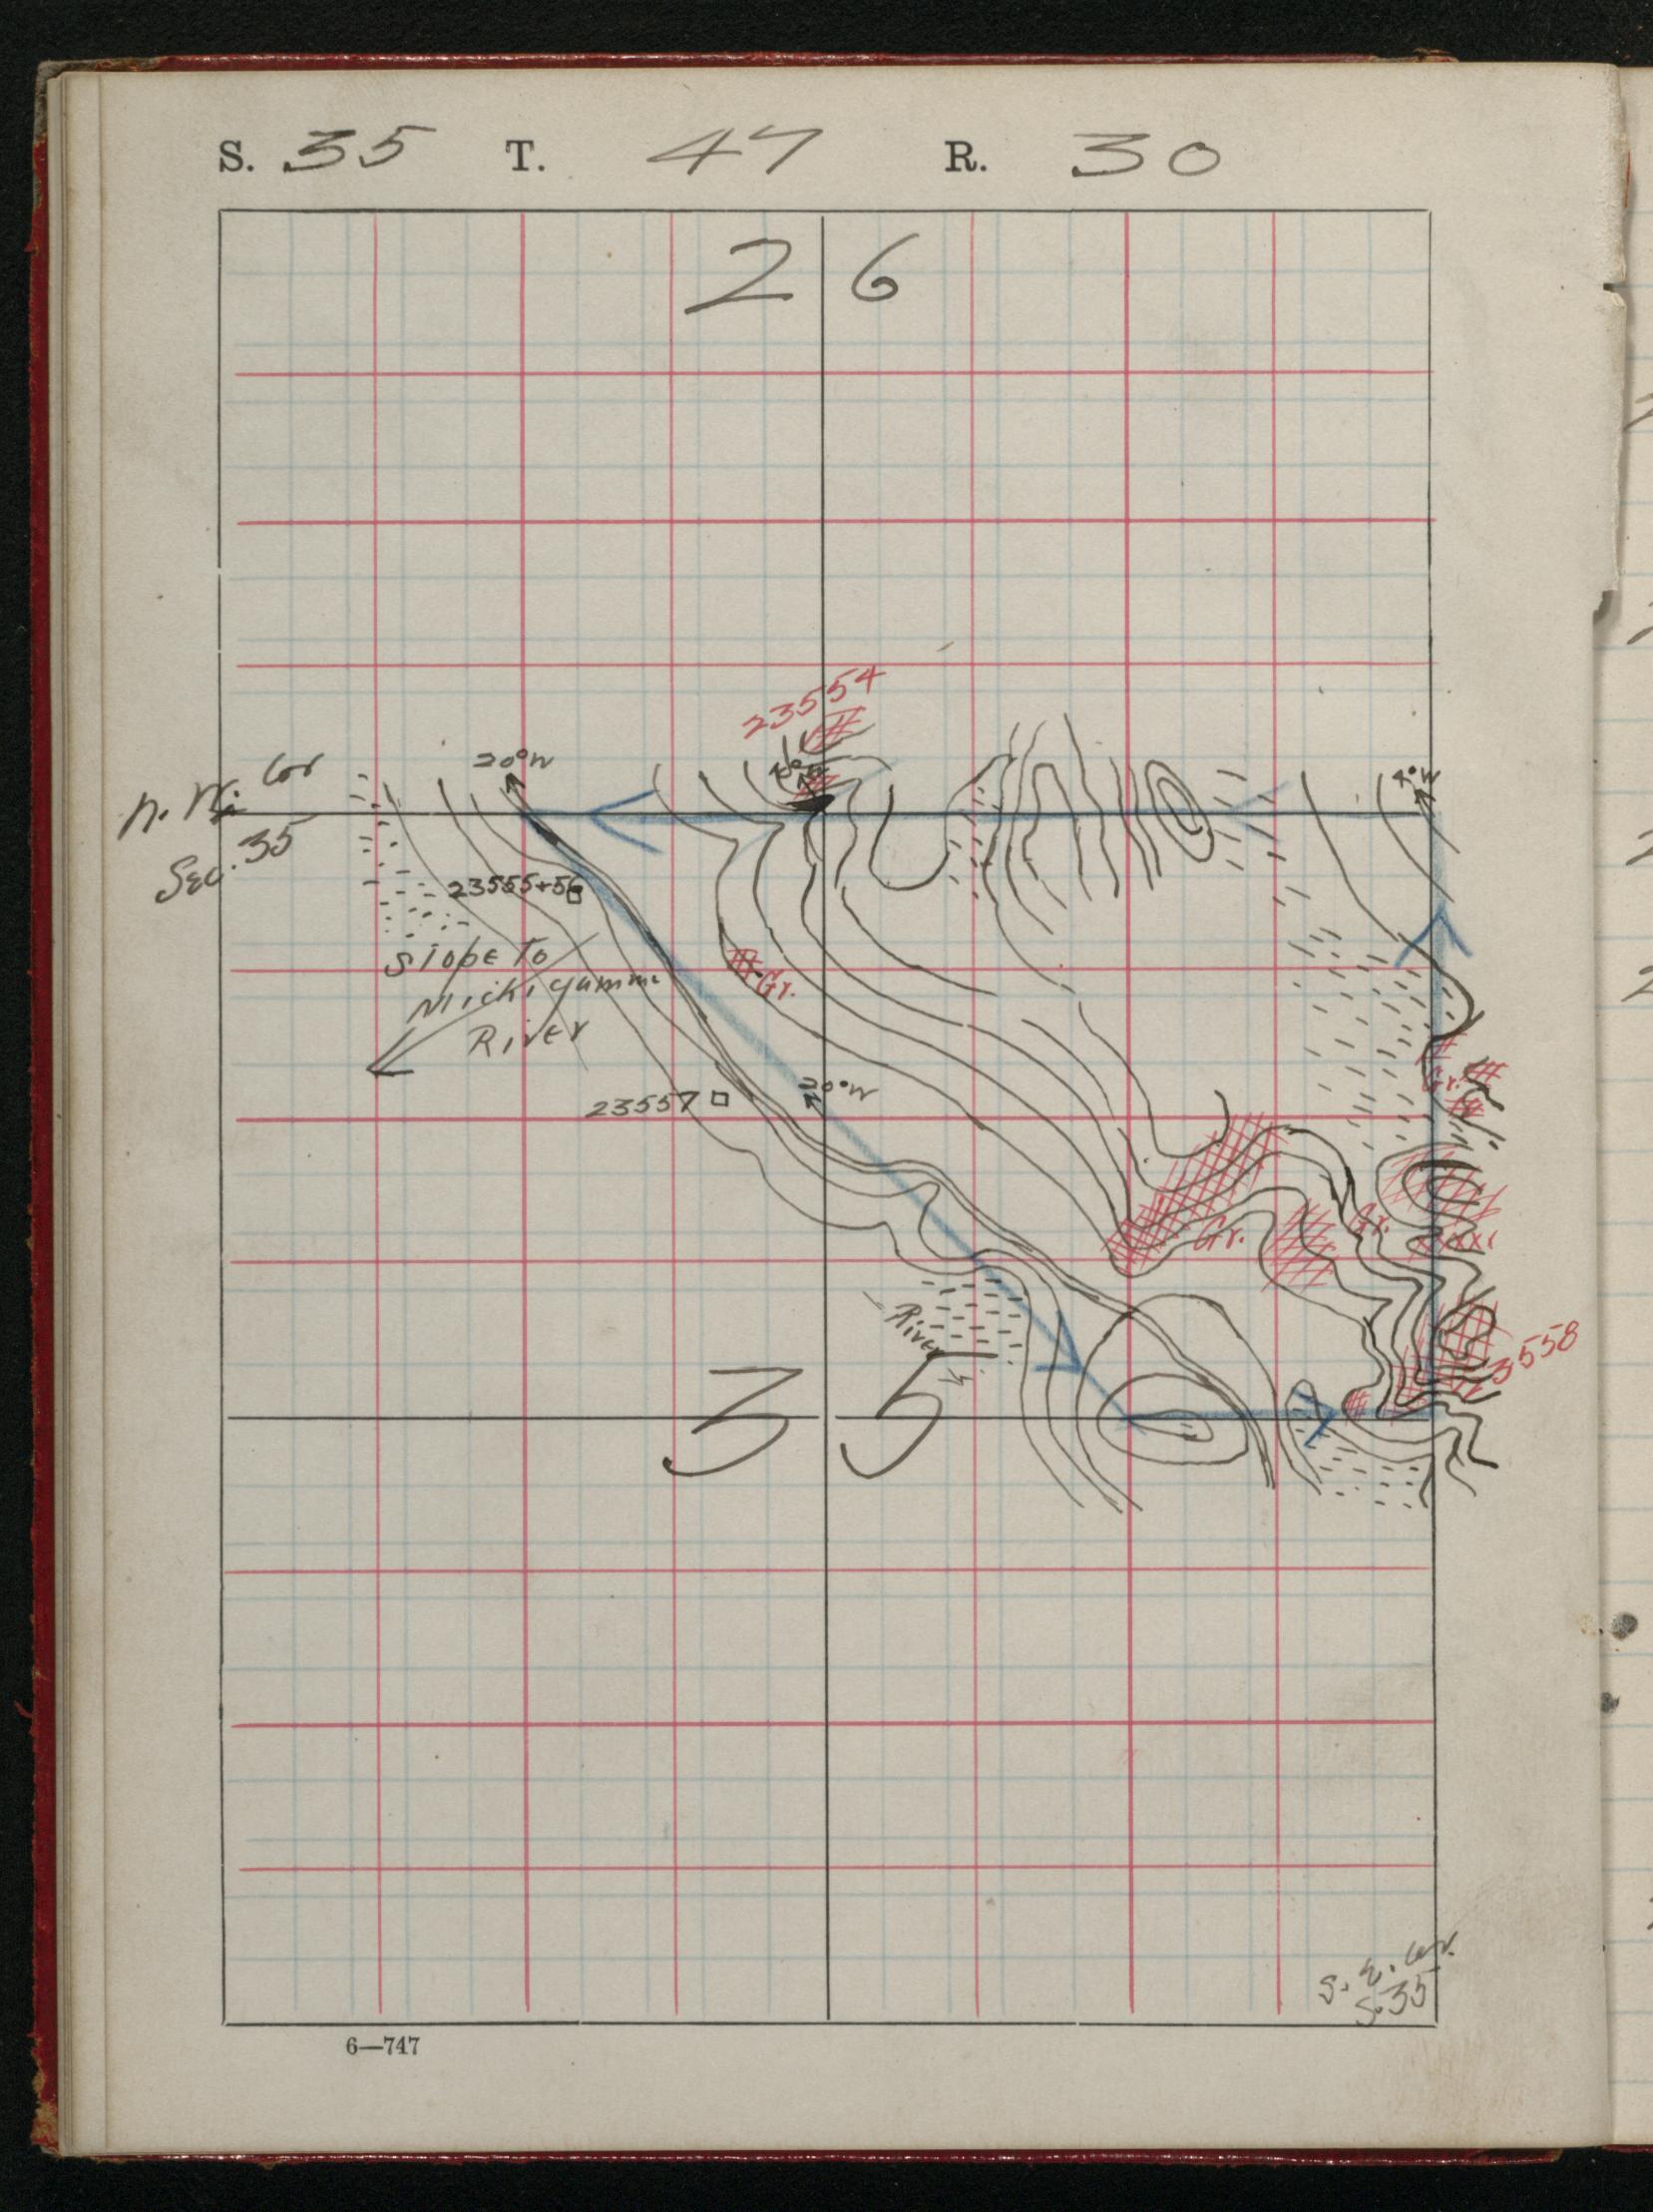 S. 35 T. 47 R. 30
26
23554
20°W
4°W
N. W. Cor
Sec. 35
23555+56
Slope To
Michigamme
River
Gr.
Gr.
23557
20°W
Gr.
Gr.
River
3558
35
S. E. Cor.
S. 35
6—747